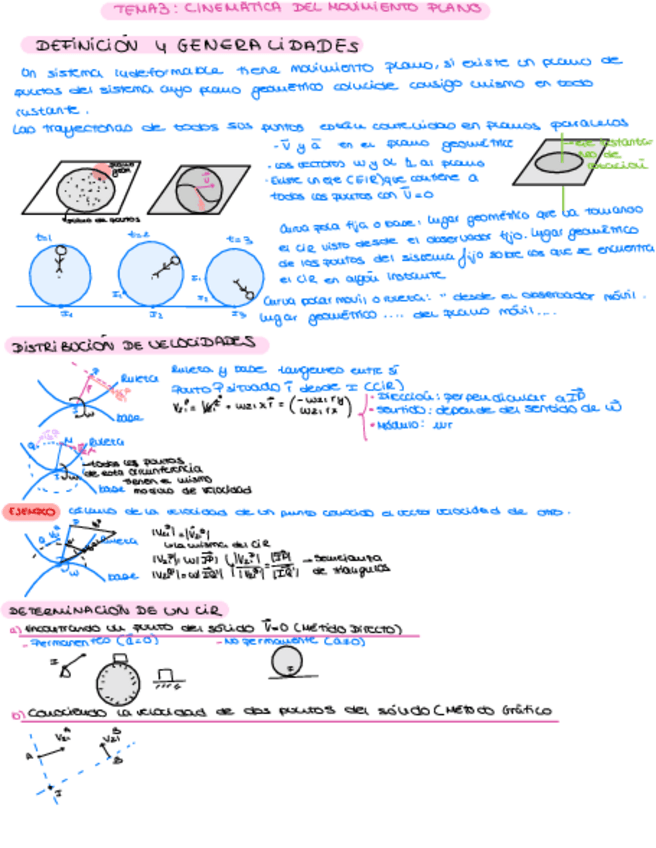 TEMA3: CINEMÁTICA DEL MOVIMIENTO PLANO
DEFINICIÓN Y GENERALIDADES
Un sistema indeformable tiene movimiento plano, si existe un plano de
puntos del sistema cuyo plano geométrico coincide consigo mismo en todo
instante.
Las trayectorias de todos sus puntos están contenidas en planos paralelos
- v⃗ y a⃗ en el plano geométrico
· Los vectores w y α ⊥ al plano
· Existe un eje (EIR) que contiene a
todos los puntos con v⃗=0
eje instantáneo de rotación
plano geom
plano de puntos
t=1
t=2
t=3
I1
I1
I2
I1
I2
I3
Curva polar fija o base: lugar geométrico que va tomando
el CIR visto desde el observador fijo. Lugar geométrico
de los puntos del sistema fijo sobre los que se encuentra
el CIR en algún instante
Curva polar móvil o ruleta: " desde el observador móvil.
Lugar geométrico .... del plano móvil....
DISTRIBUCIÓN DE VELOCIDADES
Ruleta y base tangentes entre sí
Punto P situado r⃗ desde I (CIR)
ruleta
base
· Dirección: perpendicular a IP
· Sentido: depende del sentido de w⃗
· Módulo: wr
ruleta
→todos los puntos
de esta circunferencia
tienen el mismo
módulo de velocidad
base
EJEMPLO cálculo de la velocidad de un punto conocido el vector velocidad de otro.
ruleta
base
la misma del CIR
→ semejanza
de triángulos
DETERMINACIÓN DE UN CIR
a) Encontrando un punto del sólido v⃗=0 (Método Directo)
- Permanente (a⃗=0)
- No permanente (a⃗≠0)
I
I
b) Conociendo la velocidad de dos puntos del sólido (Método Gráfico
A
B
I